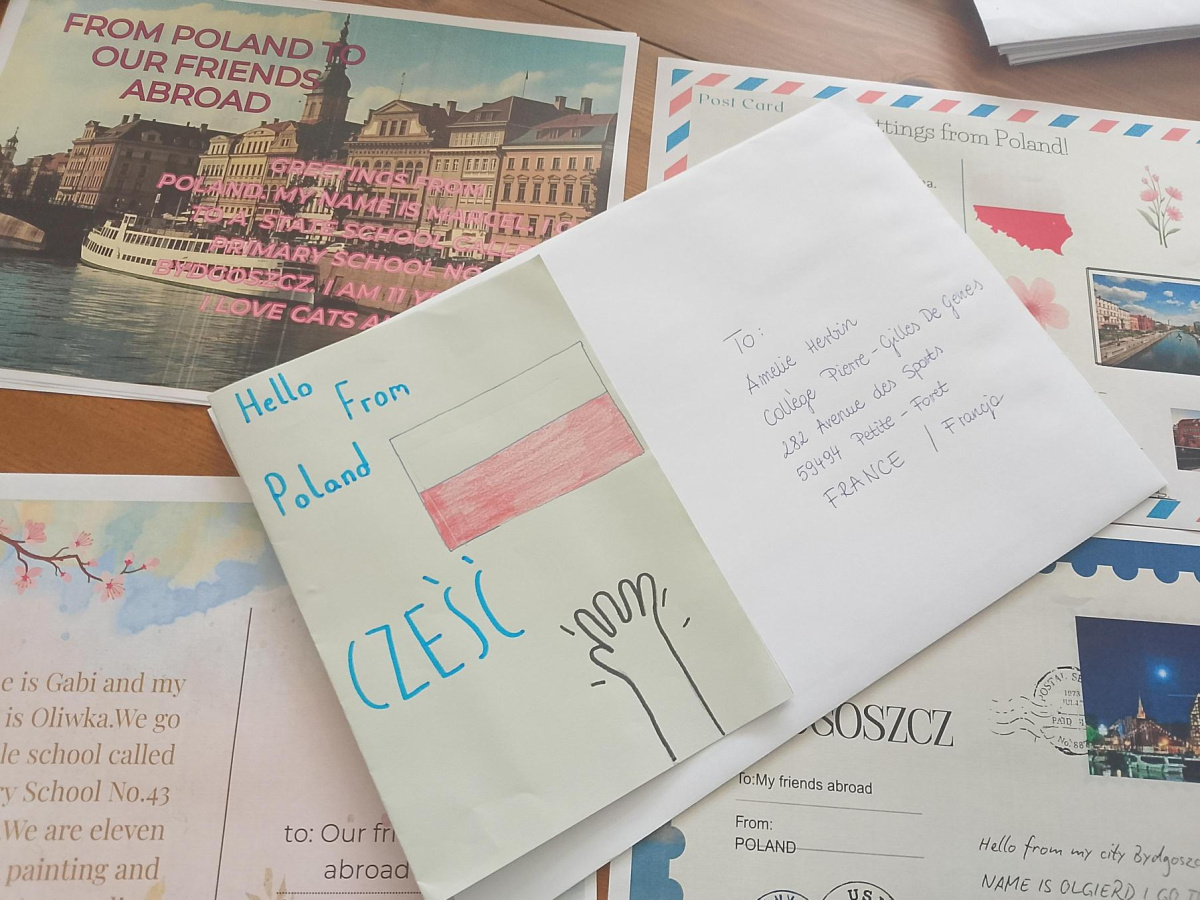 FROM POLAND TO
OUR FRIENDS
ABROAD
GREETINGS FROM
POLAND. MY NAME IS MARCEL. I
TO A STATE SCHOOL
PRIMARY SCHOOL
BYDGOSZCZ. I AM 11
I LOVE CATS
Post Card
ttings from Poland!
Hello From
Poland
CZEŚĆ
To:
Amelie Herbin
Collège Pierre-Gilles De Genes
282 Avenue des Sports
59494 Petite-Foret
FRANCE / Francja
e is Gabi and my
is Oliwka.We go
le school called
ry School No.43
.We are eleven
painting and
to: Our
abroad
GOSZCZ
To:My friends abroad
From:
POLAND
POSTAL
1973
PAID
Hello from my city Bydgoszc
NAME IS OLGIERD I GO
U.S.